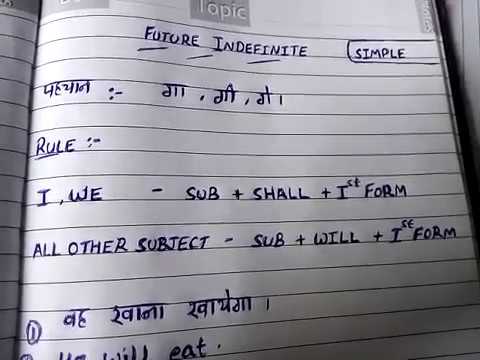 Topic
FUTURE INDEFINITE (SIMPLE
पहचान :- गा, गी, गे।
RULE :-
I, WE - SUB + SHALL + Ist FORM
ALL OTHER SUBJECT - SUB + WILL + Ist FORM
① वह खाना खायेगा।
He will eat.